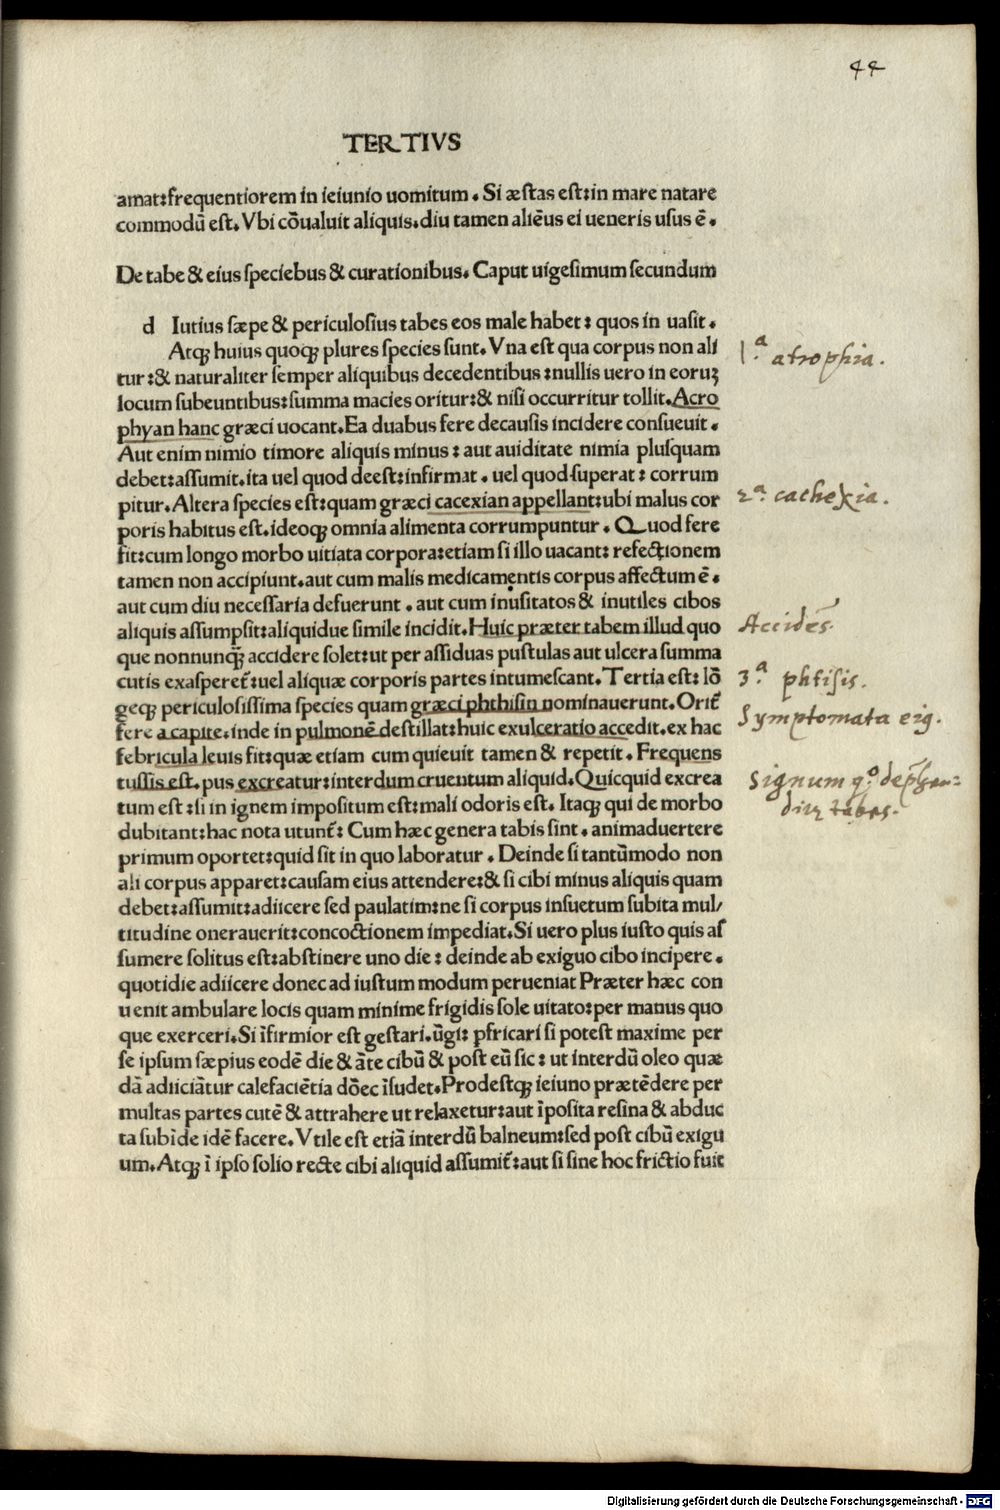 44
TERTIVS
amat:frequentiorem in ieiunio uomitum. Si æstas est:in mare natare
commodū est. Vbi cōualuit aliquis.diu tamen aliēus ei ueneris usus ē.
De tabe & eius speciebus & curationibus. Caput uigesimum secundum
d Iutius sæpe & periculosius tabes eos male habet: quos in uasit.
Atq; huius quoq; plures species sunt. Vna est qua corpus non ali
tur:& naturaliter semper aliquibus decedentibus:nullis uero in eoruꝫ
locum subeuntibus:summa macies oritur:& nisi occurritur tollit. Acro
phyan hanc græci uocant. Ea duabus fere decausis incidere consueuit.
Aut enim nimio timore aliquis minus: aut auiditate nimia plusquam
debet:assumit.ita uel quod deest:infirmat. uel quod superat: corrum
pitur. Altera species est:quam græci cacexian appellant:ubi malus cor
poris habitus est.ideoq; omnia alimenta corrumpuntur. Quod fere
fit:cum longo morbo uitiata corpora:etiam si illo uacant: refectionem
tamen non accipiunt.aut cum malis medicamentis corpus affectum ē.
aut cum diu necessaria defuerunt. aut cum inusitatos & inutiles cibos
aliquis assumpsit:aliquidue simile incidit. Huic præter tabem illud quo
que nonnunq̄ accidere solet:ut per assiduas pustulas aut ulcera summa
cutis exasperet̄:uel aliquæ corporis partes intumescant. Tertia est: lō
geq; periculosissima species quam græci phthisin nominauerunt. Orit̄
fere a capite.inde in pulmonē destillat:huic exulceratio accedit.ex hac
febricula leuis fit:quæ etiam cum quieuit tamen & repetit. Frequens
tussis est. pus excreatur:interdum cruentum aliquid. Quicquid excrea
tum est:si in ignem impositum est:mali odoris est. Itaq; qui de morbo
dubitant:hac nota utunt̄: Cum hæc genera tabis sint. animaduertere
primum oportet:quid sit in quo laboratur. Deinde si tantūmodo non
ali corpus apparet:causam eius attendere:& si cibi minus aliquis quam
debet:assumit:adiicere sed paulatim:ne si corpus insuetum subita mul/
titudine onerauerit:concoctionem impediat. Si uero plus iusto quis as
sumere solitus est:abstinere uno die: deinde ab exiguo cibo incipere.
quotidie adiicere donec ad iustum modum perueniat Præter hæc con
uenit ambulare locis quam minime frigidis sole uitato:per manus quo
que exerceri. Si īfirmior est gestari. ūgi: pfricari si potest maxime per
se ipsum sæpius eodē die & āte cibū & post eū sic: ut interdū oleo quæ
dā adiiciātur calefaciētia dōec īsudet. Prodestq; ieiuno prætēdere per
multas partes cutē & attrahere ut relaxetur:aut īposita resina & abduc
ta subīde idē facere. Vtile est etiā interdū balneum:sed post cibū exigu
um. Atq; ī ipso solio recte cibi aliquid assumit̄:aut si sine hoc frictio fuit
1.ª atrophia.
2.ª cachexia.
Accidēs.
3.ª phtisis.
Symptomata eiꝰ.
Signum
tabes.
Digitalisierung gefördert durch die Deutsche Forschungsgemeinschaft - DFG